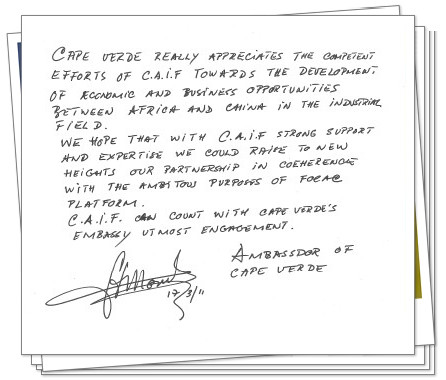 CAPE VERDE REALLY APPRECIATES THE COMPETENT
EFFORTS OF C.A.i.F TOWARDS THE DEVELOPMENT
OF ECONOMIC AND BUSINESS OPPORTUNITIES
BETWEEN AFRICA AND CHINA IN THE INDUSTRIAL
FIELD.
WE HOPE THAT WITH C.A.i.F STRONG SUPPORT
AND EXPERTISE WE COULD RAISE TO NEW
HEIGHTS OUR PARTNERSHIP IN COEHERENCE
WITH THE AMBITOUS PURPOSES OF FOCAC
PLATFORM.
C.A.i.F. CAN COUNT WITH CAPE VERDE'S
EMBASSY UTMOST ENGAGEMENT.
AMBASSDOR OF
CAPE VERDE
17/3/11